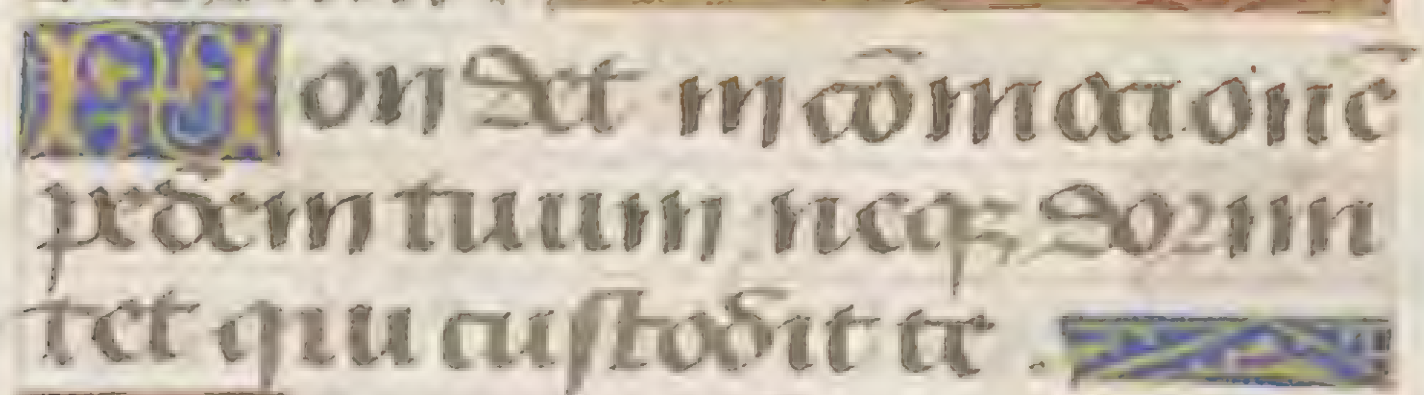 Non det in cōmotionē
pedem tuum neqꝫ dormi
tet qui custodit te .